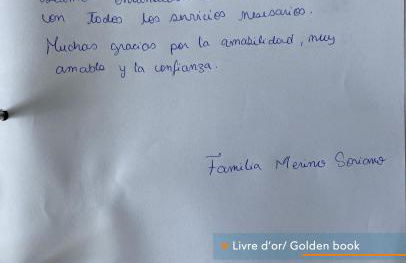 con todos los servicios necesarios.
Muchas gracias por la amabilidad, muy
amable y la confianza.
Familia Merino Soriano
Livre d'or/ Golden book